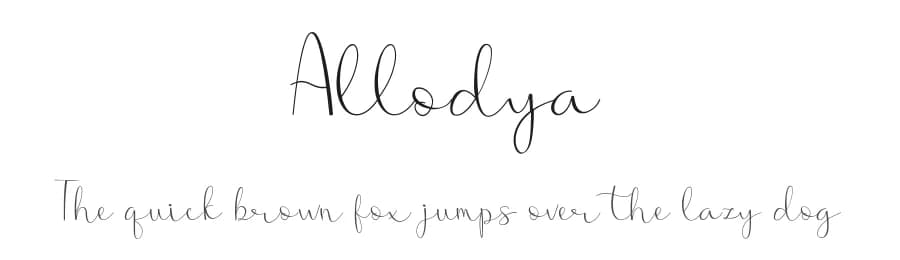 Allodya
The quick brown fox jumps over the lazy dog